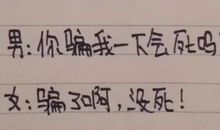 男:你骗我一下会死吗
女:骗了啊,没死!